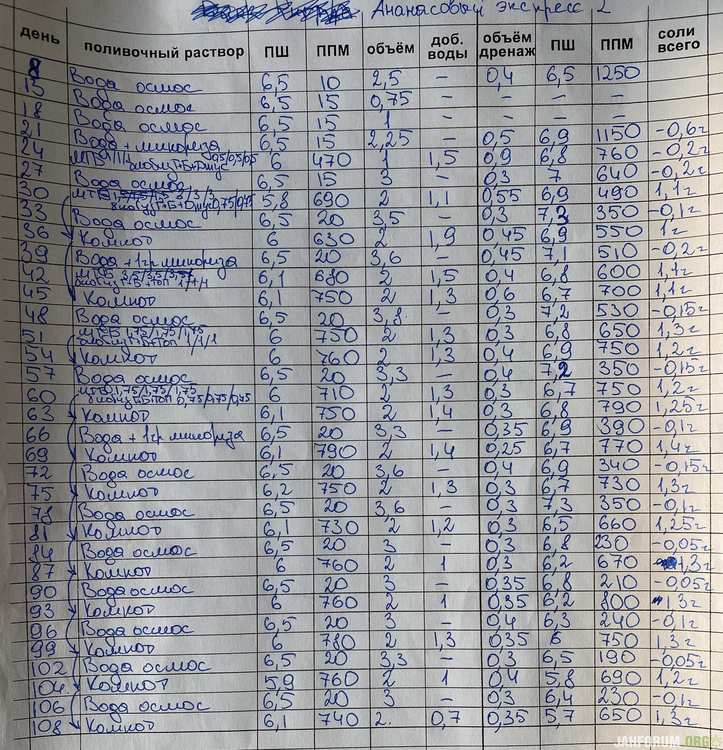 Ананасовый экспресс 2
день поливочный раствор ПШ ППМ объём доб. воды объём дренаж ПШ ППМ соли всего
8 Вода осмос 6,5 10 2,5 – 0,4 6,5 1250
15 Вода осмос 6,5 15 0,75 – – – –
18 Вода осмос 6,5 15 1 – – – –
21 Вода + микориза 6,5 15 2,25 – 0,5 6,9 1150 -0,6г
24 6 470 1 1,5 0,9 6,8 760 -0,2г
27 Вода осмос 6,5 15 3 – 0,3 7 640 -0,2г
30 5,8 690 2 1,1 0,55 6,9 490 1,1г
33 Вода осмос 6,5 20 3,5 – 0,3 7,3 350 -0,1г
36 Компот 6 630 2 1,9 0,45 6,9 550 1г
39 Вода + 1гр микориза 6,5 20 3,6 – 0,45 7,1 510 -0,2г
42 6,1 680 2 1,5 0,4 6,8 600 1,1г
45 Компот 6,1 750 2 1,3 0,6 6,7 700 1,1г
48 Вода осмос 6,5 20 3,8 – 0,3 7,2 530 -0,15г
51 6 750 2 1,3 0,3 6,8 650 1,3г
54 Компот 6 760 2 1,3 0,4 6,9 750 1,2г
57 Вода осмос 6,5 20 3,3 – 0,4 7,2 350 -0,15г
60 6 710 2 1,3 0,3 6,7 750 1,2г
63 Компот 6,1 750 2 1,4 0,3 6,8 790 1,25г
66 Вода + 1гр микориза 6,5 20 3,3 – 0,35 6,9 390 -0,1г
69 Компот 6,1 790 2 1,4 0,25 6,7 770 1,4г
72 Вода осмос 6,5 20 3,6 – 0,4 6,9 340 -0,15г
75 Компот 6,2 750 2 1,3 0,3 6,7 730 1,3г
78 Вода осмос 6,5 20 3,6 – 0,3 7,3 350 -0,1г
81 Компот 6,1 730 2 1,2 0,3 6,5 660 1,25г
84 Вода осмос 6,5 20 3 – 0,3 6,8 230 -0,05г
87 Компот 6 760 2 1 0,3 6,2 670 1,3г
90 Вода осмос 6,5 20 3 – 0,35 6,8 210 -0,05г
93 Компот 6 760 2 1 0,35 6,2 800 1,3г
96 Вода осмос 6,5 20 3 – 0,4 6,3 240 -0,1г
99 Компот 6 780 2 1,3 0,35 6 750 1,3г
102 Вода осмос 6,5 20 3,3 – 0,3 6,5 190 -0,05г
104 Компот 5,9 760 2 1 0,4 5,8 690 1,2г
106 Вода осмос 6,5 20 3 – 0,3 6,4 230 -0,1г
108 Компот 6,1 740 2. 0,7 0,35 5,7 650 1,3г
JAHFORUM.ORG